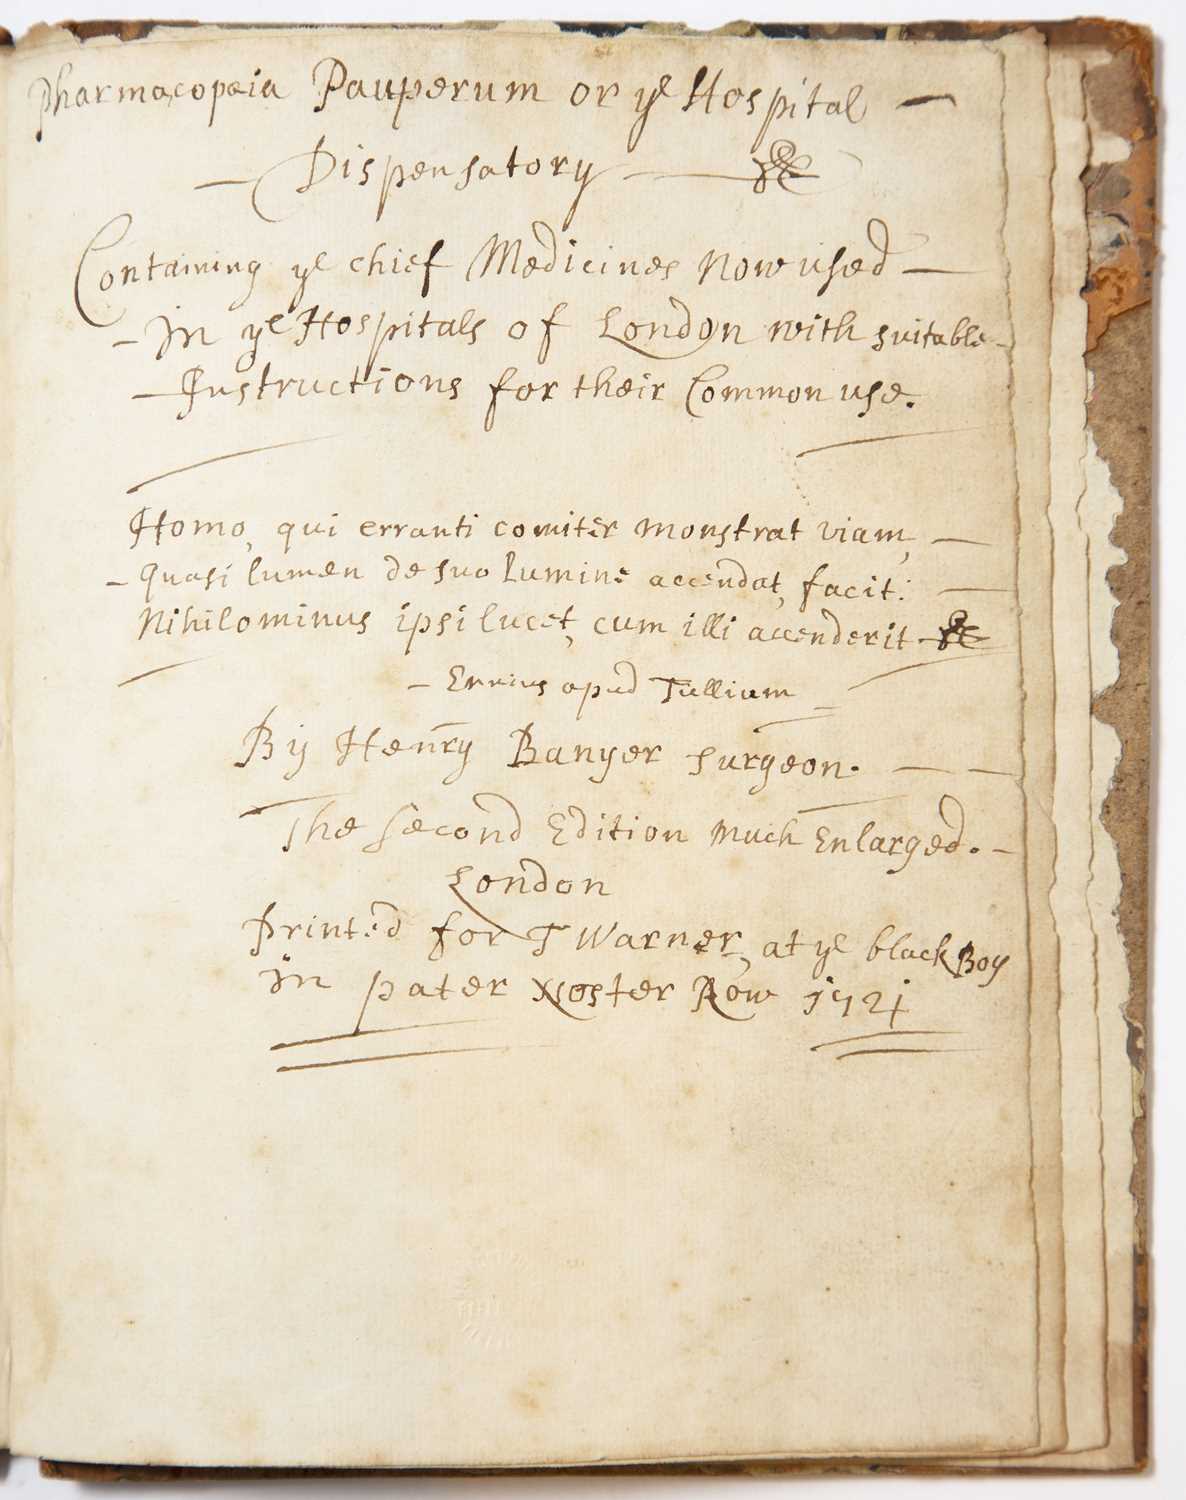 Pharmacopæia Pauperum or yͤ Hospital —
— Dispensatory — &c
Containing yͤ chief Medicines Now used —
– In yͤ Hospitals of London with suitable –
— Instructions for their Common use.
Homo, qui erranti comiter monstrat viam, —
– Quasi lumen de suo lumine accendat, facit: —
Nihilominus ipsi lucet, cum illi accenderit &c
– Ennius apud Tullium
By Henry Banyer surgeon. — —
The Second Edition Much Enlarged. –
London
Printed for T Warner, at yͤ black Boy
In pater Noster Row 1721